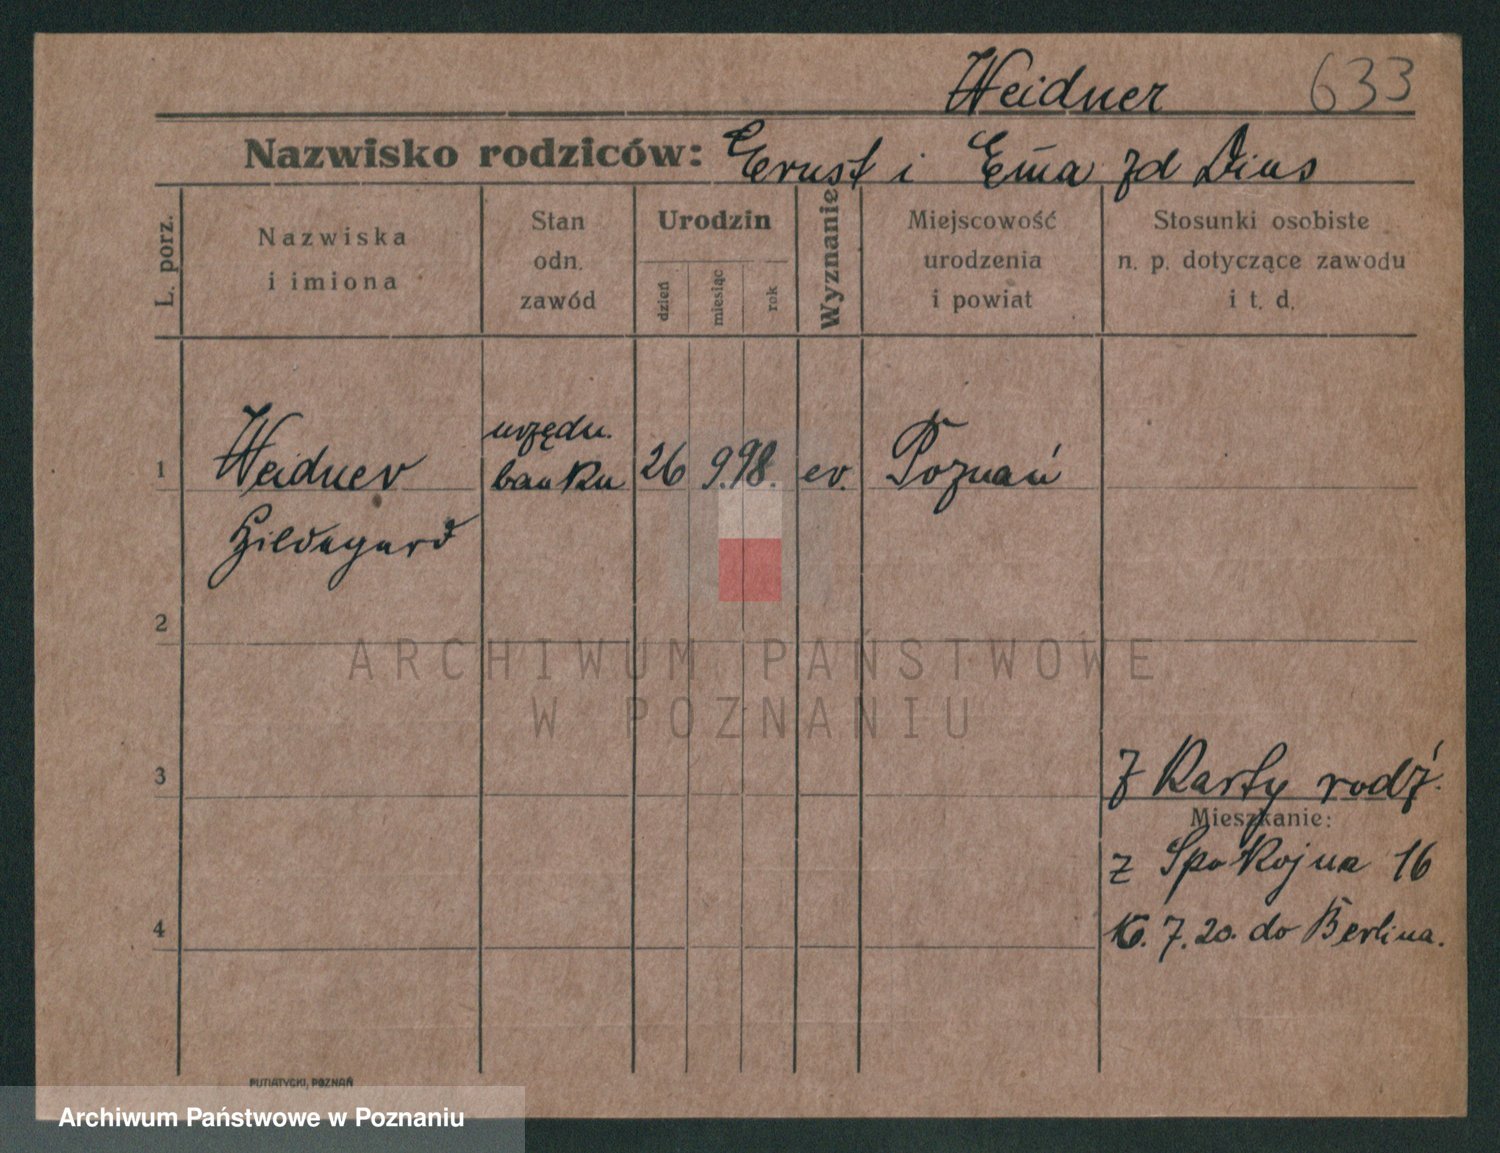 Weidner 633
Nazwisko rodziców: Ernst i Em̄a zd Dius
L. porz.
Nazwiska
i imiona
Stan
odn.
zawód
Urodzin
dzień
miesiąc
rok
Wyznanie
Miejscowość
urodzenia
i powiat
Stosunki osobiste
n. p. dotyczące zawodu
i t. d.
1 Weidner
Hildegard
urzędn.
banku
26 9. 98. ev. Poznań
2
ARCHIWUM PAŃSTWOWE
W POZNANIU
3
z Karty rodź.
Mieszkanie:
z Spokojna 16
4
16. 7. 20. do Berlina.
PUTIATYCKI, POZNAŃ
Archiwum Państwowe w Poznaniu